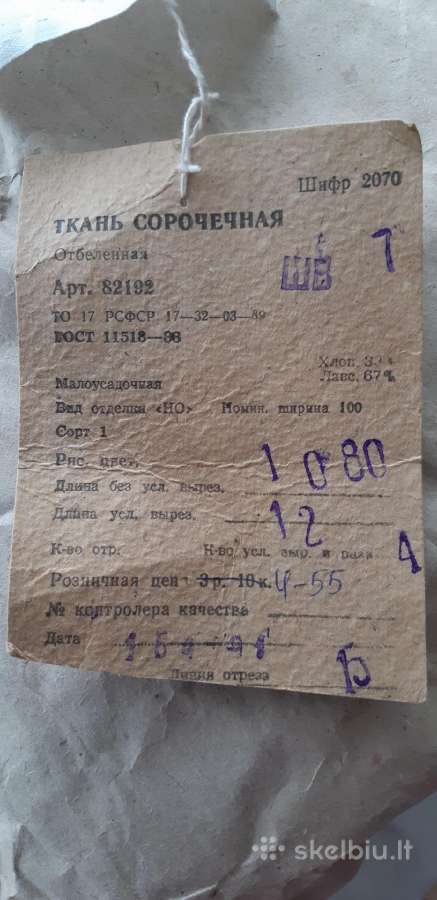 Шифр 2070
ТКАНЬ СОРОЧЕЧНАЯ
Отбеленная
ШВ 7
Арт. 82192
ТО 17 РСФСР 17—32—03—89
ГОСТ 11518—
Хлоп.
Лавс. 67%
Малоусадочная
Вид отделки «НО» Номин. ширина 100
Сорт 1
Рис. цвет.
Длина без усл. вырез. 10 80
Длина усл. вырез. 12
К-во отр. К-во усл. выр. и 1
Розничная цена 3 р. 10 к. 4-55
№ контролера качества
Дата
Линия отреза 15
skelbiu.lt